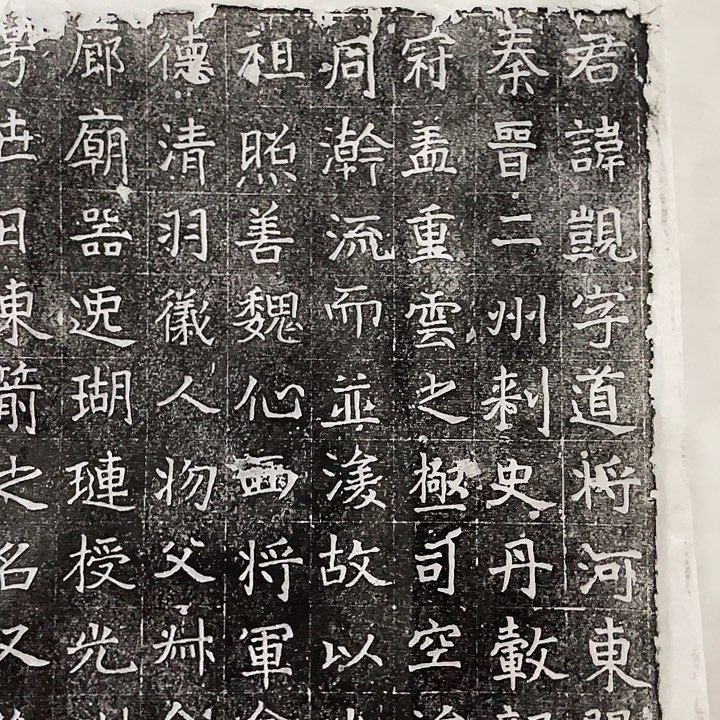 君諱覬字道将河東
秦晉二州刺史丹轂
冠盖重雲之極司空
洞澣流而並漾故以
祖照善魏西将軍
德清羽儀人物父
廊廟器逸瑚璉授光
東箭之名又